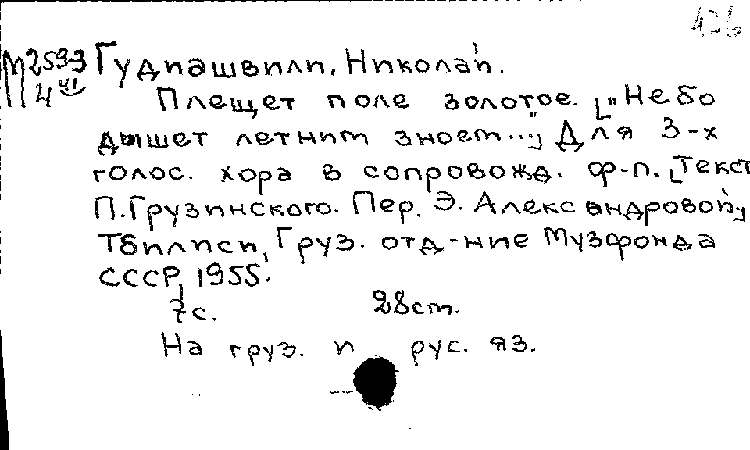 426
М 253-3 Гудиашвили, Николай.
4 VI
Плещет поле золотое. ["Небо
дышет летним зноем..."] Для 3-х
голос. хора в сопровожд. ф-п. [Текст
П. Грузинского. Пер. Э. Александровой]
Тбилиси, Груз. отд-ние Музфонда
СССР, 1955.
7 с. 28 см.
На груз. и рус. яз.